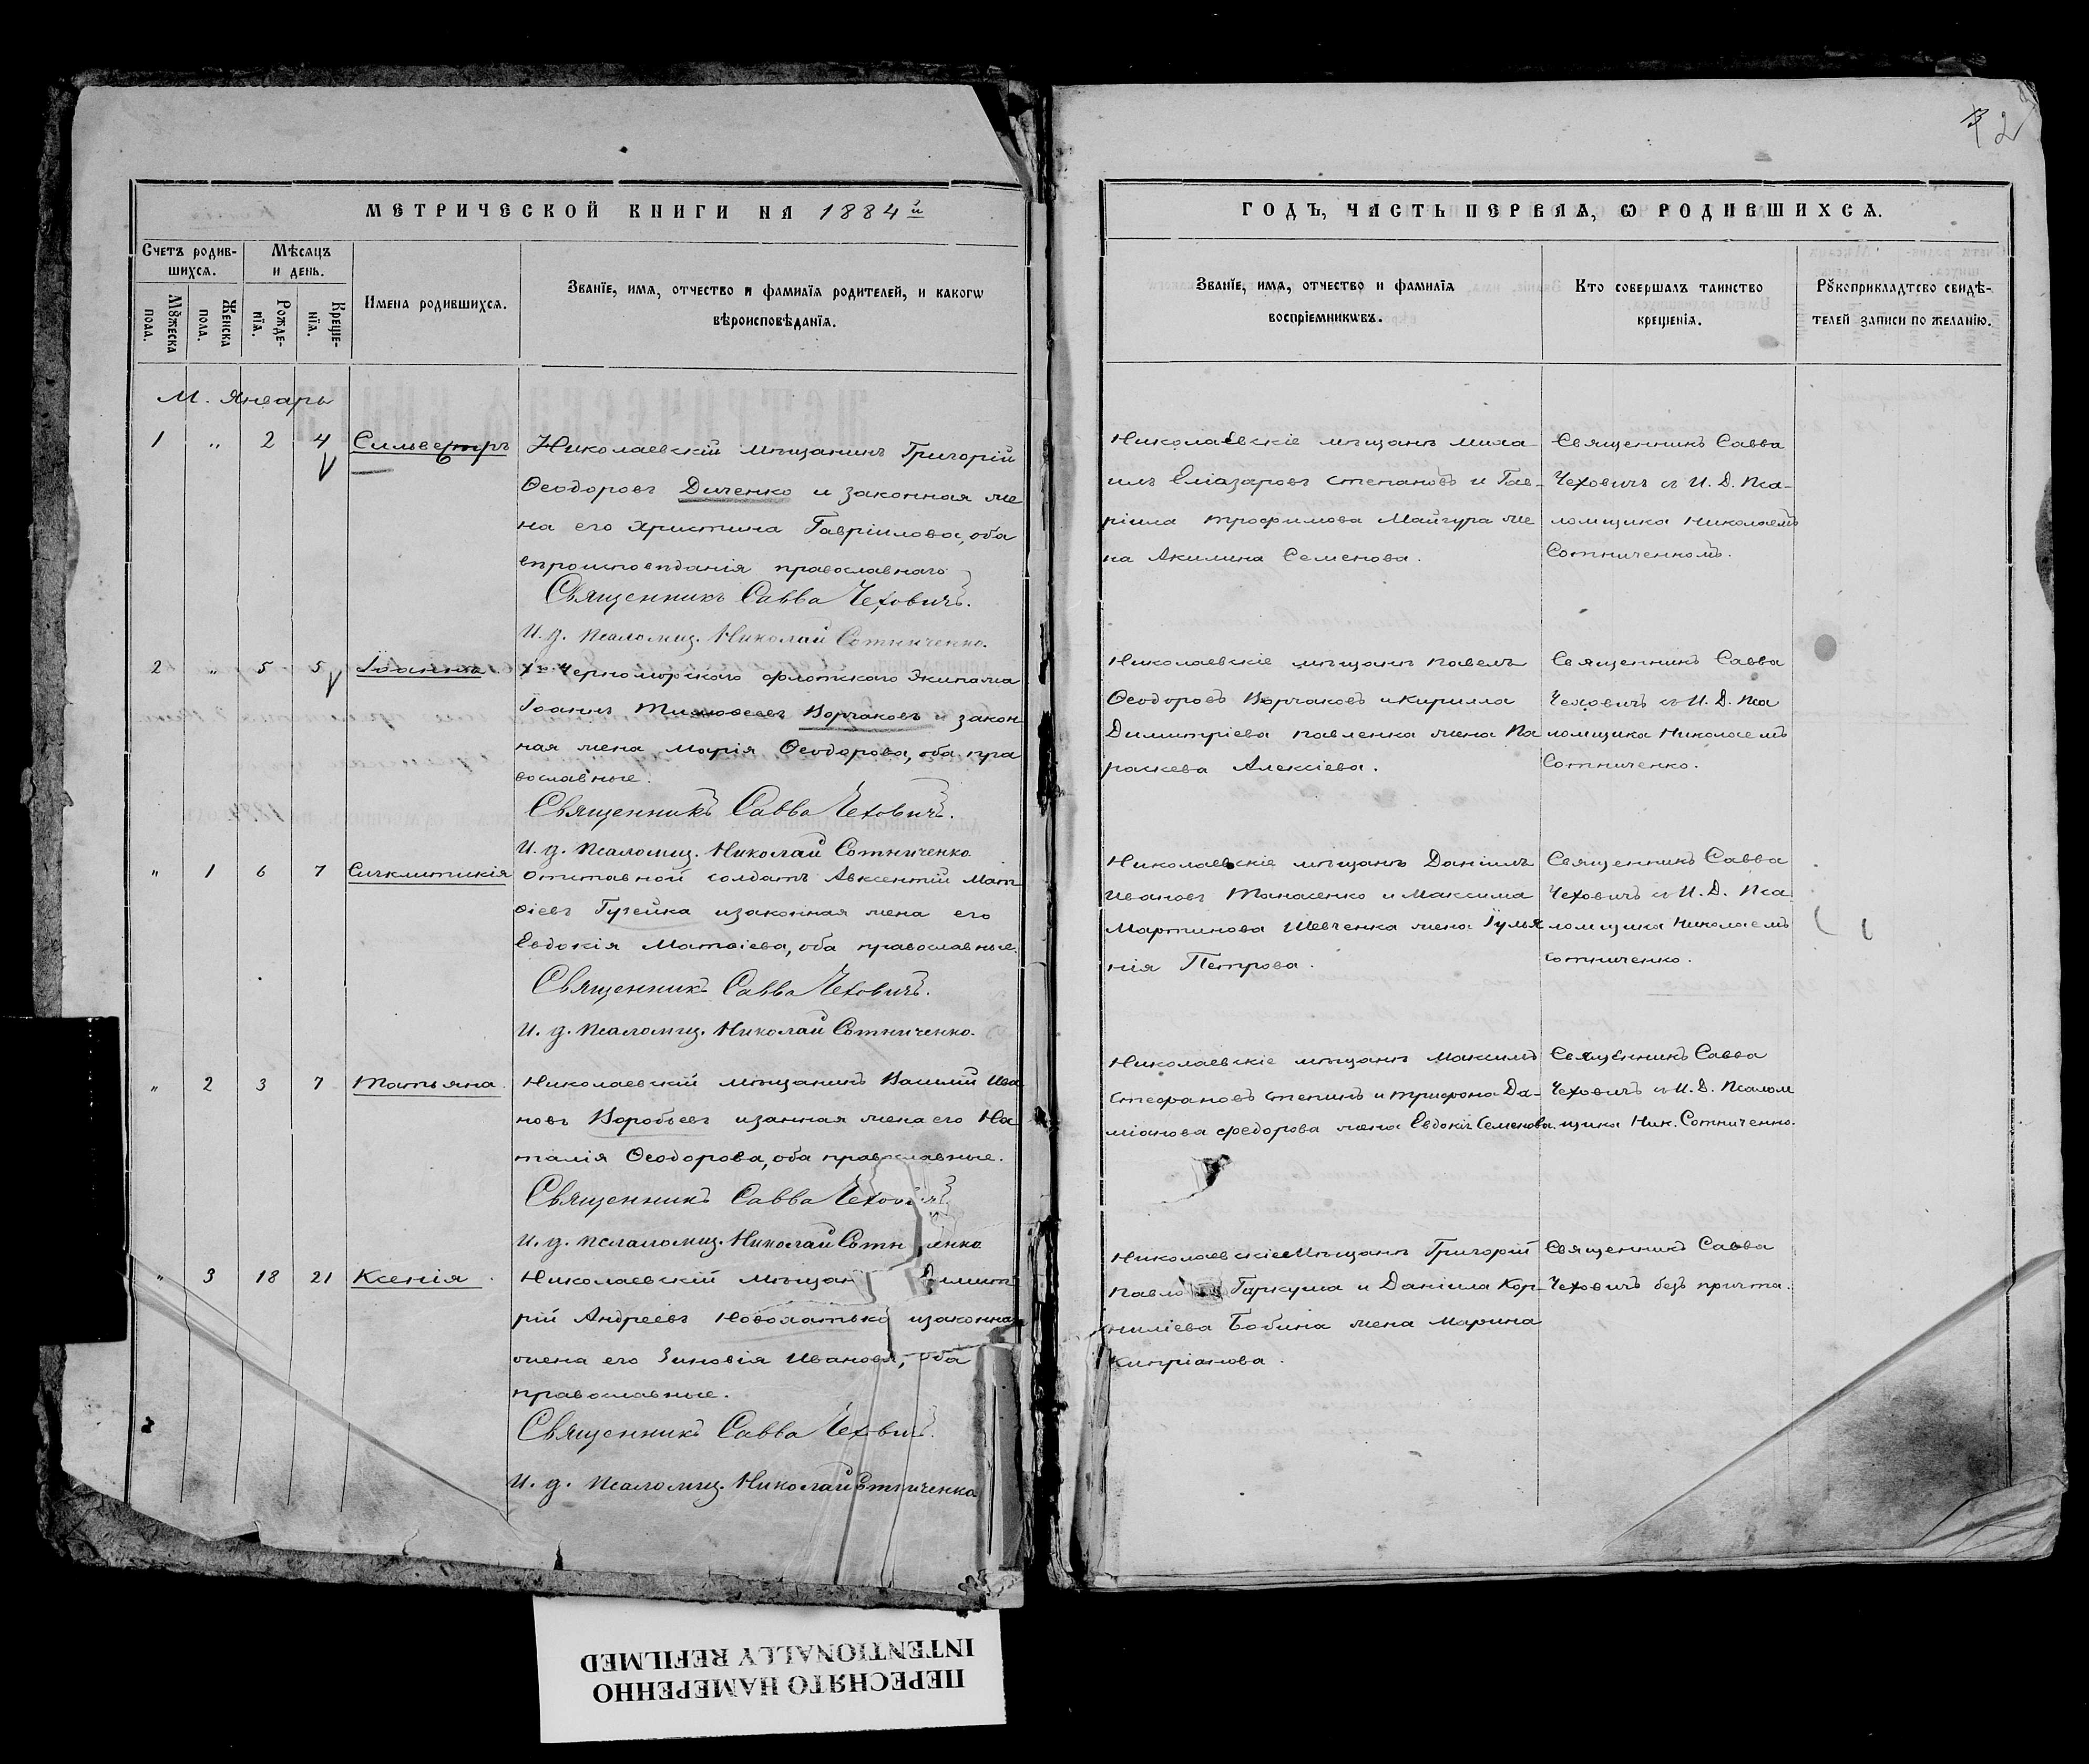 2
МЕТРИЧЕСКОЙ КНИГИ НА 1884й
Счетъ родив-
шихся.
Мѣсяцъ
и день.
Мꙋжеска
пола.
Женска
пола.
Рожде-
нїя.
Креще-
нїя.
Имена родившихся.
Званїе, имя, отчество и фамилїя родителей, и какогѡ
вѣроисповѣданїя.
М. Январь
1 „ 2 4 Сильвестръ
Николаевскій мѣщанинъ Григорій
Ѳеодоровъ Диченко и законная же
на его Христина Гавріилова, оба
вѣроисповѣданія православнаго
Священникъ Савва Чеховичъ.
И. д. псаломщ. Николай Сотниченко.
2 „ 5 5 Іоаннъ
Черноморского флотского Экипажа
Іоаннъ Тимоѳеевъ Корчаковъ и закон
ная жена Марія Ѳеодорова, оба пра
вославные.
Священникъ Савва Чеховичъ.
И. д. псаломщ. Николай Сотниченко
„ 1 6 7 Сигклитикія
Отставной солдатъ Авксентій Мат
ѳіевъ Гузейка и законная жена его
Евдокія Матѳіева, оба православные.
Священникъ Савва Чеховичъ.
И. д. псаломщ. Николай Сотниченко.
„ 2 3 7 Татьяна
Николаевскій мѣщанинъ Василій Ива
новъ Воробьевъ изанная жена его На
талія Ѳеодорова, оба православные.
Священникъ Савва
И. д. псаломщ. Николай
„ 3 18 21 Ксенія.
Николаевскій мѣщан Димит
рій Андреевъ Новохатько и законна
жена его Зиновія Иванова, оба
православные.
Священникъ Савва
И. д. псаломщ. Николай Сотниченко
ГОДЪ, ЧАСТЬ ПЕРВАЯ, Ѡ РОДИВШИХСЯ.
Званїе, имя, отчество и фамилїя
воспрїемникѡвъ.
Кто совершалъ таинство
крещенїя.
Рꙋкоприкладтсво свидѣ-
телей записи по желанїю.
Николаевскіе мѣщанъ Миха
илъ Еліазаровъ Степановъ и Гав-
ріила Трофимова Майгура же
на Акилина Семенова.
Священникъ Савва
Чеховичъ съ И. Д. Пса-
ломщика Николаемъ
Сотниченкомъ.
Николаевскіе мѣщанъ Павелъ
Ѳеодоровъ Корчаковъ и Кирилла
Димитріева Павленка жена Па
раскева Алексіева.
Священникъ Савва
Чеховичъ съ И. Д. Пса
ломщика Николаемъ
Сотниченко.
Николаевскіе мѣщанъ Даніилъ
Ивановъ Танасенко и Максима
Мартинова Шевченка жена Іуліа
нія Петрова.
Священникъ Савва
Чеховичъ съ И. Д. Пса
ломщика Николаемъ
Сотниченко.
Николаевскіе мѣщанъ Максимъ
Стефановъ Степинъ и Трифона Да-
міанова Федорова жена Евдокія Семенова.
Священникъ Савва
Чеховичъ съ И. Д. Псалом
щика Ник. Сотниченко.
Николаевскіе мѣщанъ Григорій
Гаркуша и Даніила Кор
ниліева Бабина жена Марина
Кипріанова.
Священникъ Савва
Чеховичъ безъ причта.
ПЕРЕСНЯТО НАМЕРЕННО
INTENTIONALLY REFILMED